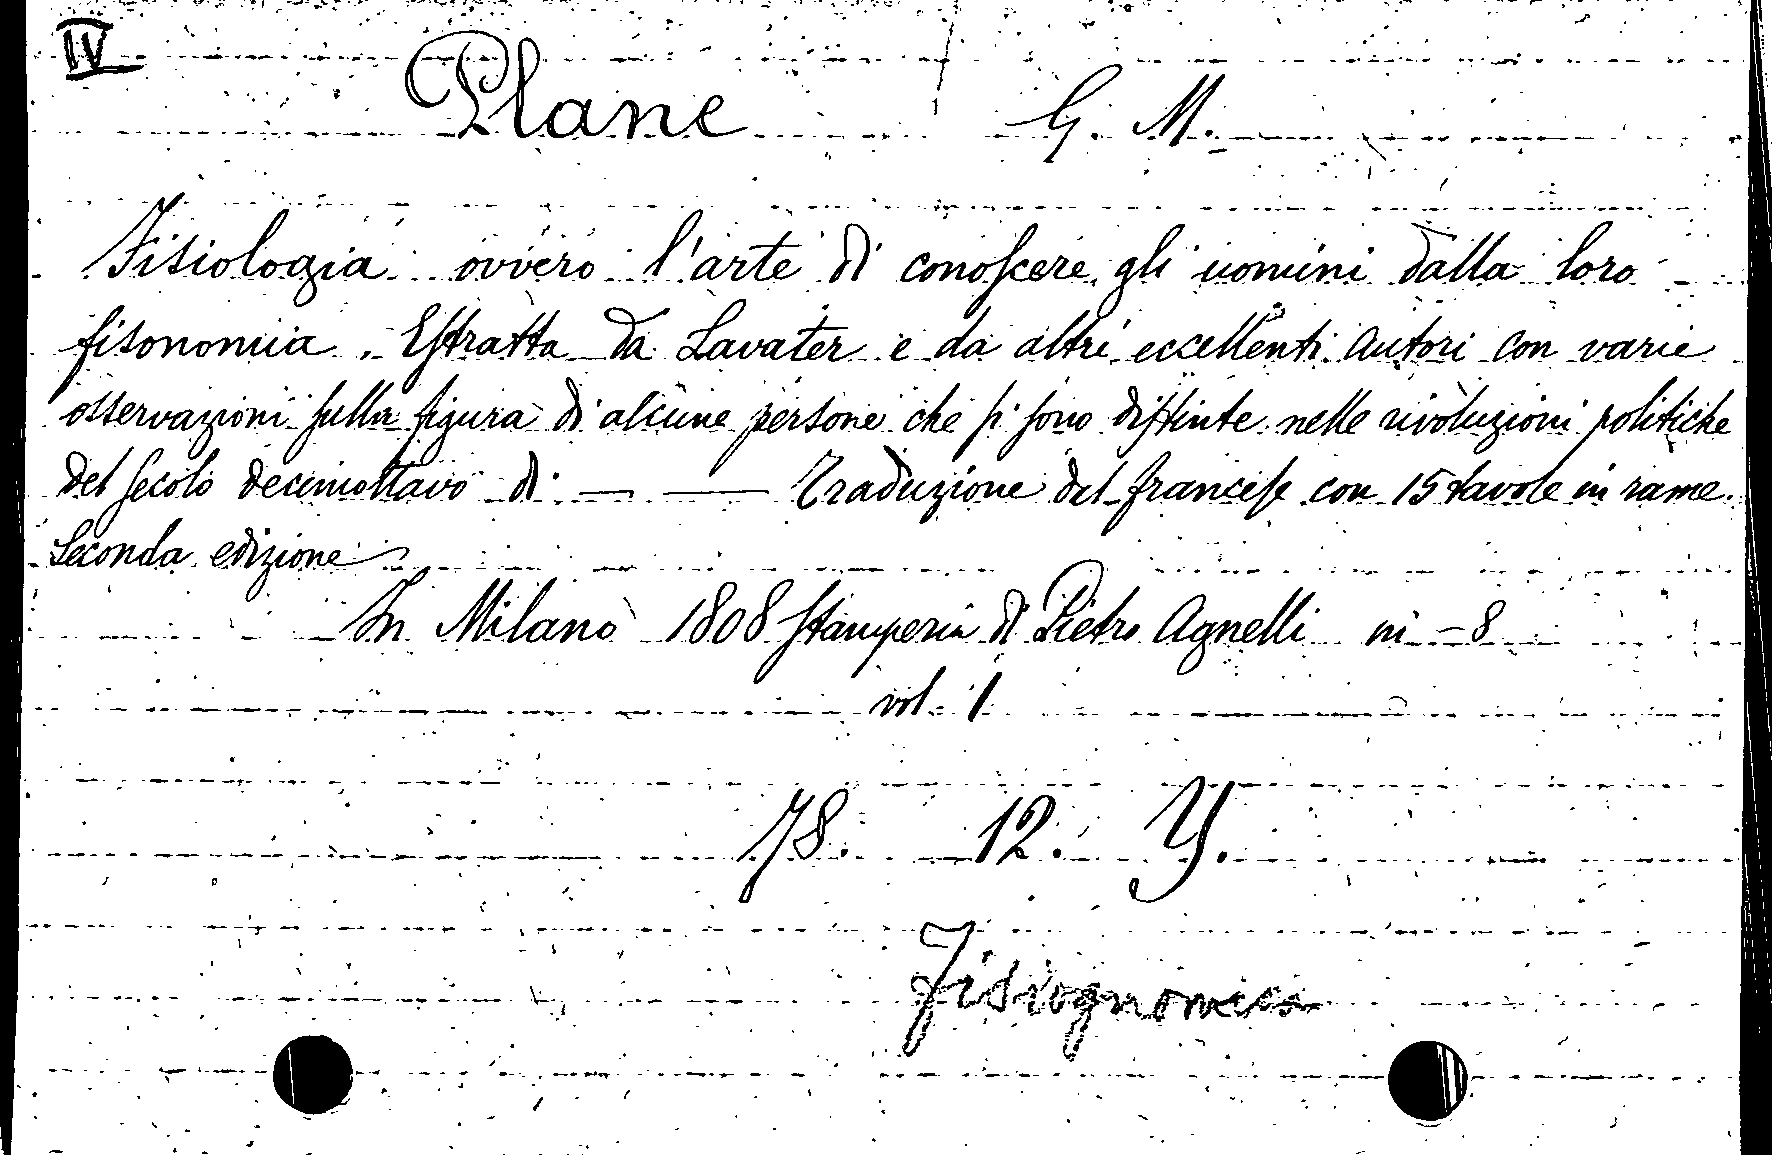 IV
Plane G. M.
Fisiologia ovvero l'arte di conoſcere gli uomini dalla loro
fisonomia. Eſtratta da Lavater e da altri eccellenti autori con varie
osservazioni ſulla figura di alcune persone che ſi ſono diſtinte nelle rivoluzioni politiche
del ſecolo decimottavo di — — Traduzione dal franceſe con 15 tavole in rame.
Seconda edizione
In Milano 1808 ſtamperia di Pietro Agnelli in-8
vol. 1
78. 12. Y.
Fisiognomica